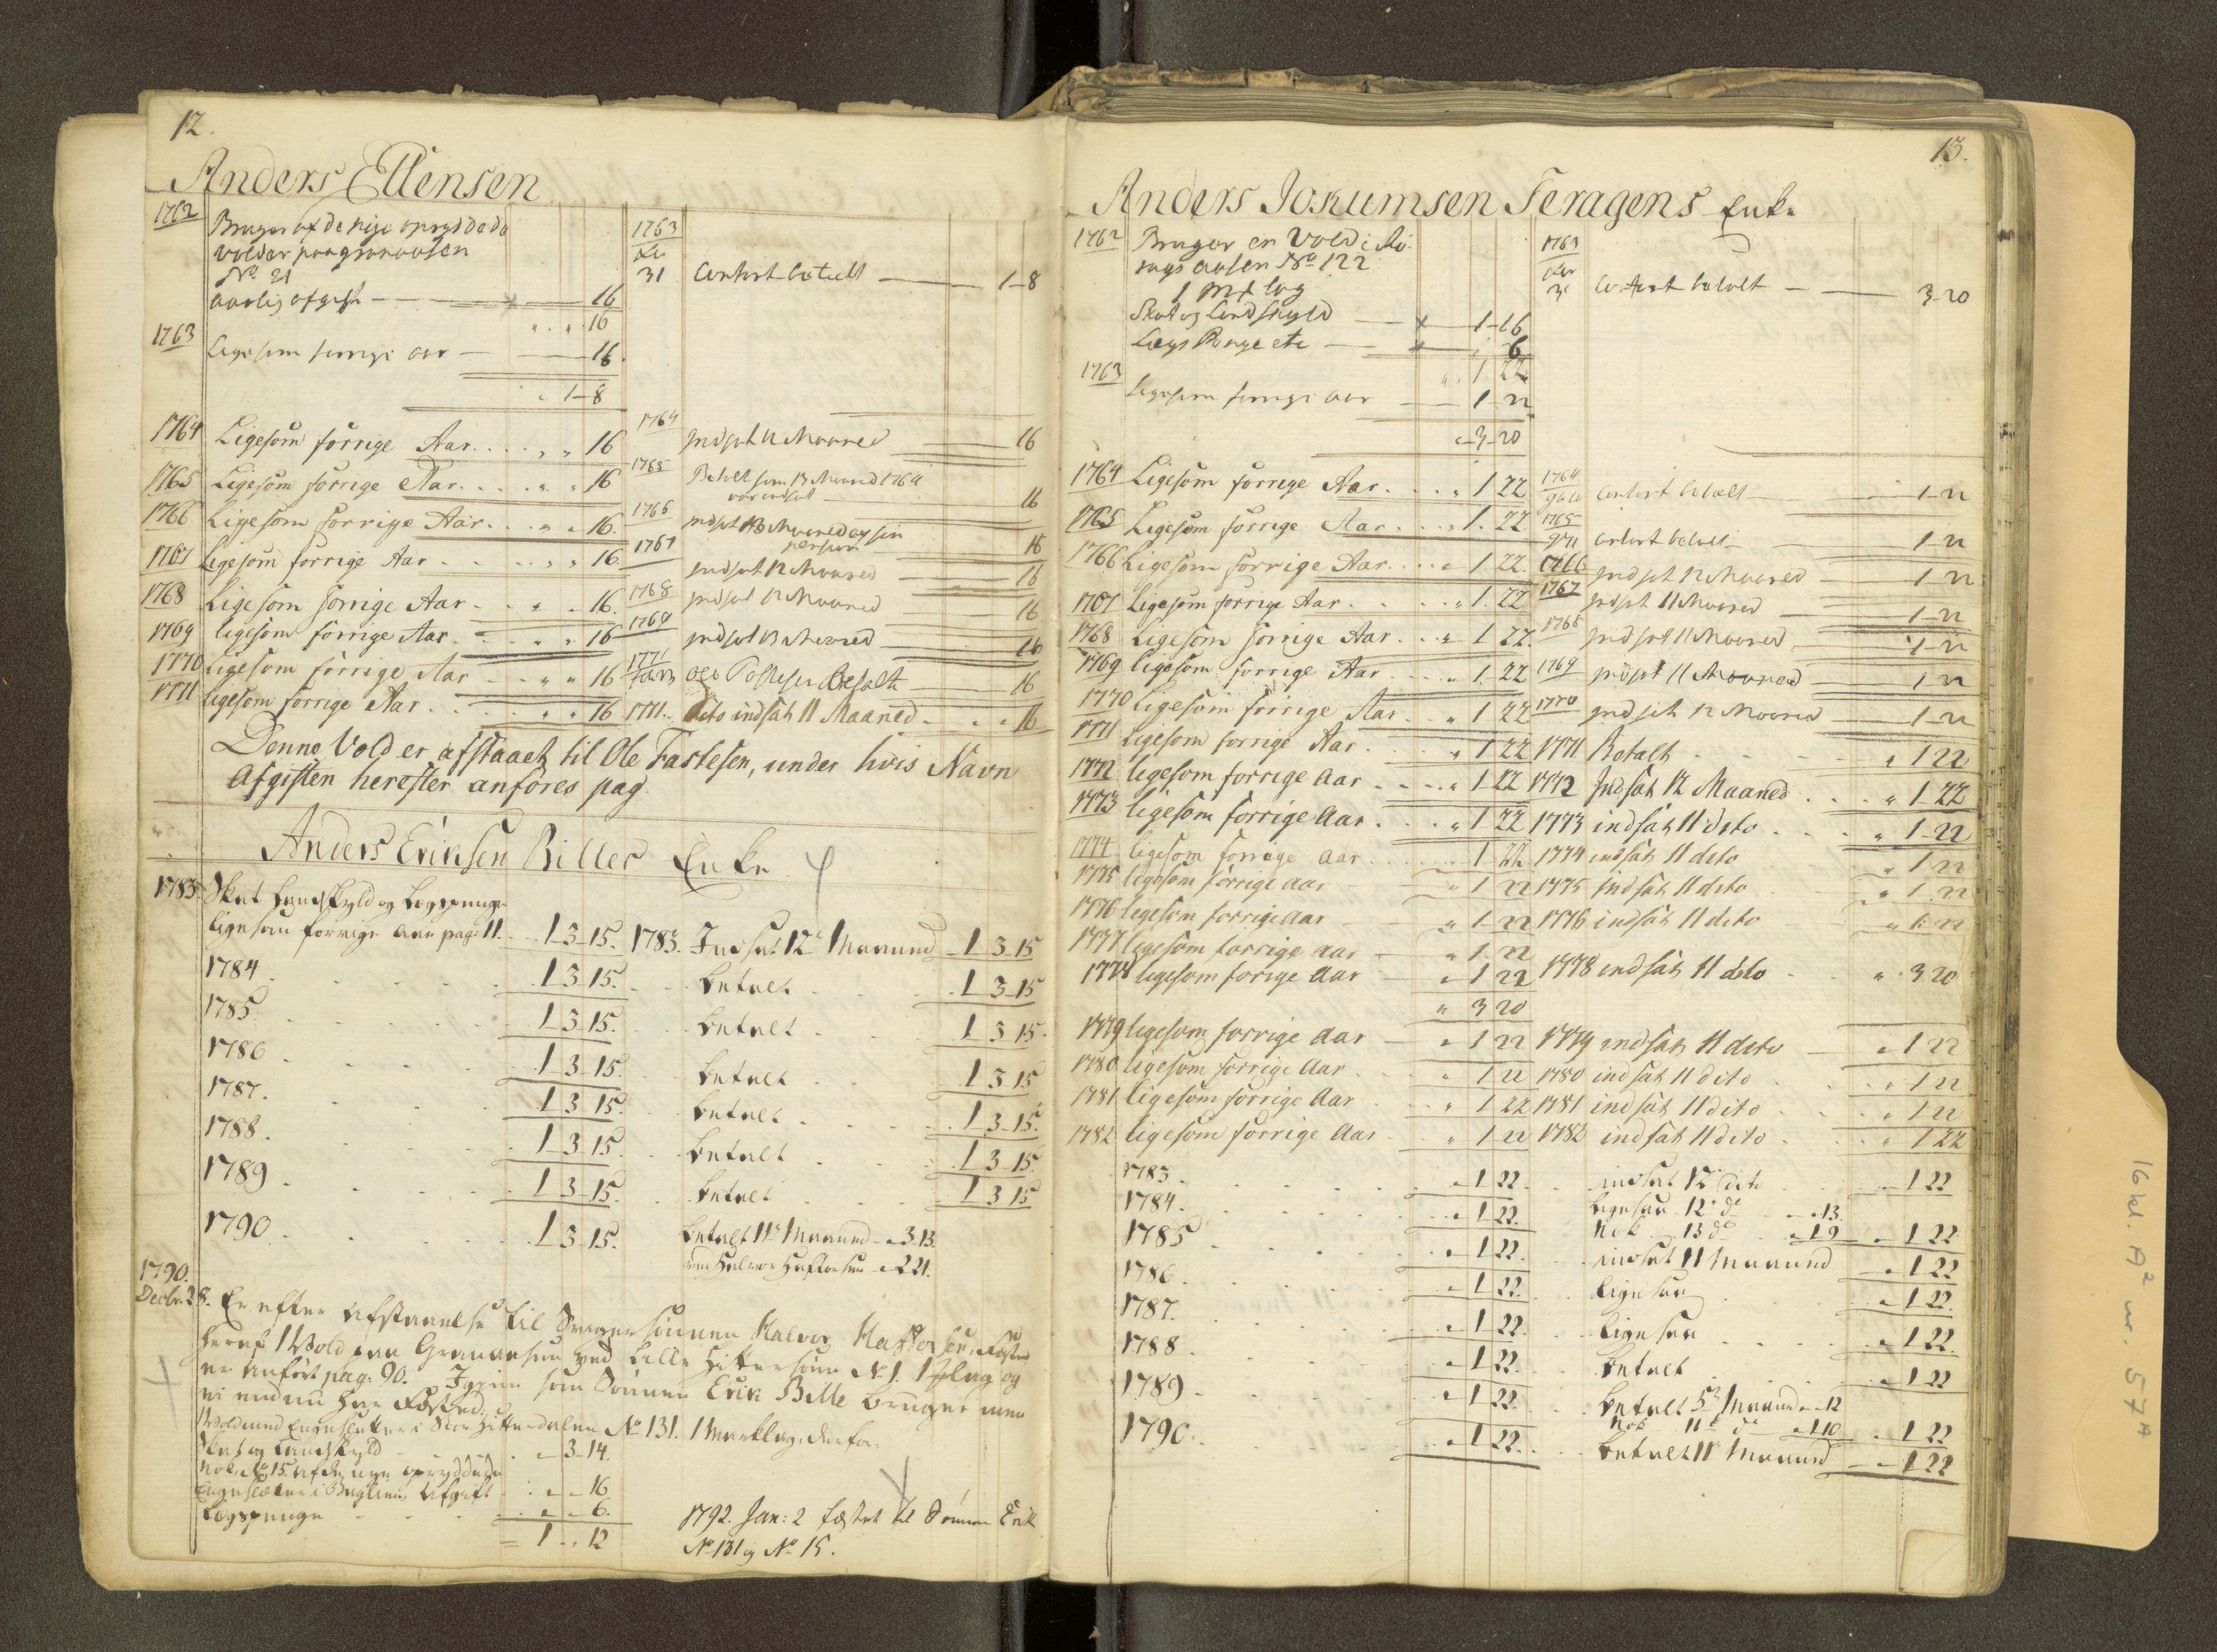 12.
Anders Ellensen
1762 Bruger af de nye opryddede
volder paa granaasen
No. 21
aarlig afgift — 16
" . " . 16
1763 Ligesom forrige aar — 16
" 1-8
1764 Ligesom forrige Aar . . . . " " 16
1765 Ligesom forrige Aar . . . . " " 16
1766 Ligesom forrige Aar . . . " " 16.
1767 Ligesom forrige Aar . . . . " " 16.
1768 Ligesom forrige Aar . . " " 16.
1769 ligesom forrige Aar . . " " 16
1770 ligesom forrige Aar . . " " 16
1771 ligesom forrige Aar . . " " 16
1763
31 Contant betalt — 1-8
1764 Indsat 12 Maaned — 16
1765 Betalt som 13 Maaned 1764
var indsat — 16
1766 indsat 13 Maaned af sin
person — 16
1767 Indsat 12 Maaned — 16
1768 Indsat 12 Maaned — 16
1769 Indsat 13 Maaned — 16
1771 Ole Betalte — 16
1771. dito indsat 11 Maaned . . " " 16
Denne Vold er afstaaet til Ole Fastesen, under hvis Navn
Afgiften herefter anføres pag.
Anders Eriksen Billes Enke
1783 Skat Landskyld og Lægspenge
ligesom forrige Aar pag: 11. . 1-3-15. 1783. Indsat 12te Maaned 1 3 15
1784 . . . . 1 3 15. . . betalt . . 1 3-15
1785 . . . . 1 3 15. . . betalt . . 1 3 15.
1786 . . . . 1 3 15. . . betalt . . 1 3 15
1787. . . . . 1 3 15. . . betalt . . . 1 3 15.
1788. . . . . 1 3 15. . . betalt . . 1 3 15.
1789 . . . . 1 3 15. . . betalt . . 1 3 15
1790 . . . . 1 3 15. betalt 11te Maaned - " 3-13.
ved Halvor Haftorsen " 2 21.
1790.
Decbr. 28. Er efter Afstaaelse til Svigersønnen Halvor Haftorsen, fæstet
heraf 1 Vold paa Granaasen ved Lille Hittersøen No. 1. 1 flag og
er anført pag: 90. Igien som Sønnen Erik Bille bruger men
ei endnu har Fæsted:
Vold med Engeslætter i Stor Hitterdalen No. 131. 1 Marklag, derfor.
Skat og Landskyld . . . " 3-14.
Nok, No. 15. af de nye opryddede
Engeslætter i Afgift . " " 16
Lægspenge . . . " " 6.
1 . " 12
1792. Jan: 2 fæstet til Sønnen Erik
No. 131 og No. 15.
13.
Anders Jokumsen Feragens Enke
1762 Bruger en Vold i
aasen No 122
1 mk lag
Skat og Landskyld — 1-16
Lægs Penge etc — " 6
" . 1 . 22
1763 Ligesom forrige aar — 1-22
" 3-20
1763
31 Contant betalt — 3-20
1764 Ligesom forrige Aar . . . " 1 22 1764 Contant betalt — 1-22
1765 Ligesom forrige Aar . . . " 1. 22 1765 Contant betalt — 1-22
1766 Ligesom forrige Aar . . . " 1 22. 1766 Indsat 12 Maaned — 1-22
1767 Ligesom forrige Aar . . . " 1. 22 1767 Indsat 11 Maaned — 1-22
1768 Ligesom forrige Aar . . " 1 22. 1768 Indsat 11 Maaned — 1-22
1769 ligesom forrige Aar . . " 1. 22 1769 Indsat 11 Maaned — 1-22
1770 ligesom forrige Aar . . " 1 22 1770 Indsat 12 Maaned — 1-22
1771 ligesom forrige Aar . . " 1 22 1771 Betalt . . . " 1 22
1772 ligesom forrige Aar . . . " 1 22 1772 Indsat 12 Maaned . . " 1 22
1773 ligesom forrige Aar . . " 1 22 1773 indsat 11 dito . . " 1-22
1774 ligesom forrige Aar . . " 1 22 1774 indsat 11 dito " 1 22
1775 ligesom forrige Aar — " 1 22 1775 indsat 11 dito . " 1 22
1776 ligesom forrige Aar — " 1 22 1776 indsat 11 dito " 1 22
1777 ligesom forrige Aar — " 1 22
1778 ligesom forrige Aar — " 1 22 1778 indsat 11 dito . . " 3 20
" 3 20
1779 ligesom forrige Aar — " 1 22 1779 indsat 11 dito — " 1 22
1780 ligesom forrige Aar . . " 1 22 1780 indsat 11 dito . " 1 22
1781 ligesom forrige Aar . . " 1 22 1781 indsat 11 dito . . " 1 22
1782 ligesom forrige Aar . . " 1 22 1782 indsat 11 dito . . " 1 22
1783 . . . . . " 1 22. . . indsat 12te dito . . " 1 22
1784. . . . . " 1 22. . . ligesaa 12te do " 13.
Nok . 13 do " 1 9 " 1 22
1785 . . . . . " 1 22. . . indsat 11 Maaned — " 1 22
1786. . . . . " 1 22. . . ligesaa . . " 1 22.
1787. . . . . " 1 22. . . ligesaa . . " 1 22.
1788 . . . . . " 1 22. . . betalt . . " 1 22
1789 . . . . . " 1 22. . . betalt 5te Maaned " 12
Nok 11te do " 1 10 . " 1 22
1790. . . . . " 1 22. . . betalt 11te Maaned — " 1 22
16 kl. A2 nr. 57A